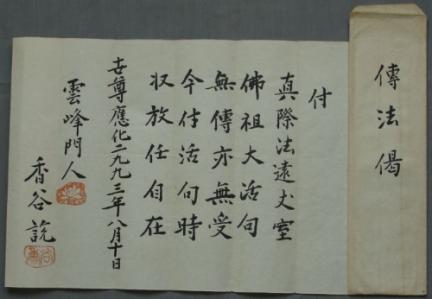 傳法偈
付
真際法遠丈室
佛祖大活句
無傳亦無受
今付活句時
収放任自在
世尊應化二九九三年八月十日
雲峰門人
香谷說